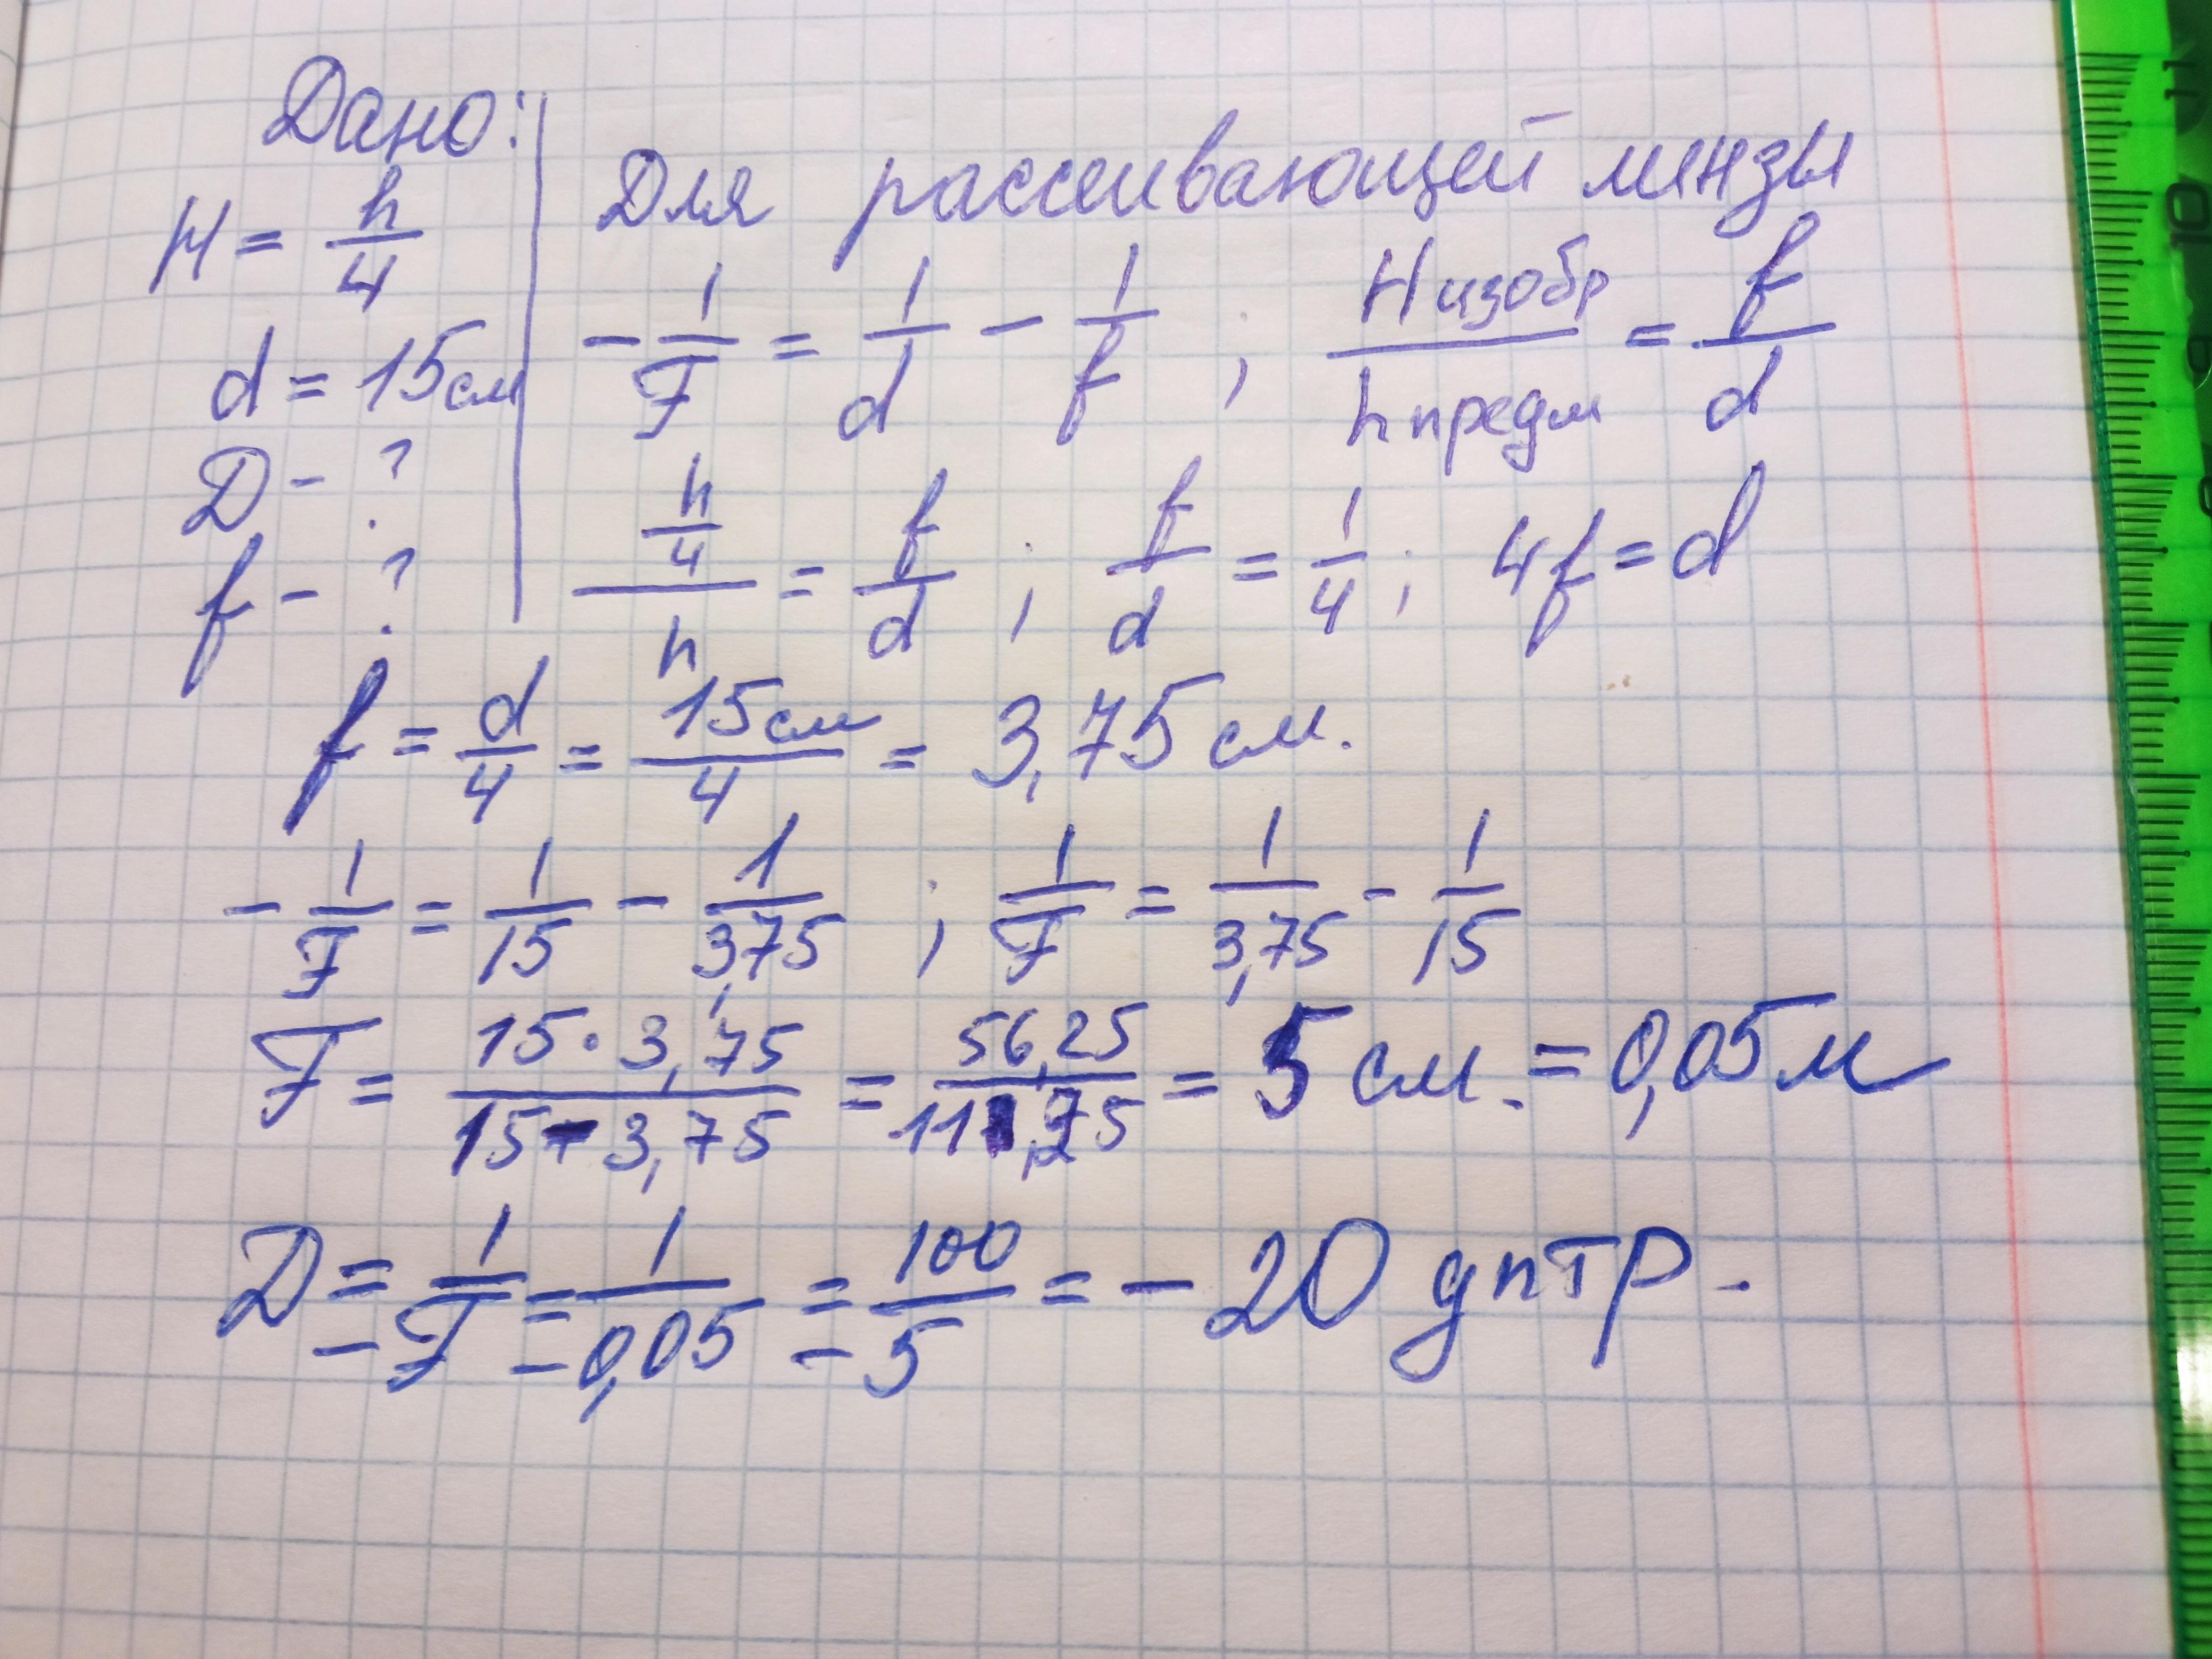 Дано:
H = h/4
d = 15см
D - ?
f - ?
Для рассеивающей линзы
- 1/F = 1/d - 1/f ; Hизобр/hпредм = f/d
(h/4)/h = f/d ; f/d = 1/4 ; 4f = d
f = d/4 = 15см/4 = 3,75 см.
- 1/F = 1/15 - 1/3,75 ; 1/F = 1/3,75 - 1/15
F = 15·3,75/15-3,75 = 56,25/11,25 = 5 см. = 0,05м
D = 1/-F = 1/-0,05 = 100/-5 = -20 дптр.
11
10
9